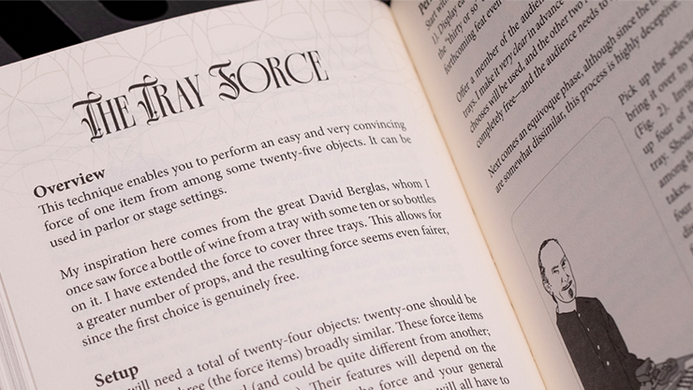 THE TRAY FORCE
Overview
This technique enables you to perform an easy and very convincing
force of one item from among some twenty-five objects. It can be
used in parlor or stage settings.
My inspiration here comes from the great David Berglas, whom I
once saw force a bottle of wine from a tray with some ten or so bottles
on it. I have extended the force to cover three trays. This allows for
a greater number of props, and the resulting force seems even fairer,
since the first choice is genuinely free.
Setup
will need a total of twenty-four objects: twenty-one should be
(the force items) broadly similar. These force items
(and could be quite different from another;
Their features will depend on the
the force and your general
will all have to
Start
1). Display
the "thirty or so"
forthcoming feat even
Offer a member of the audience
trays. I make it very clear in advance
chooses will be used, and the other two
completely free—and the audience needs to
Next comes an equivoque phase, although since the
are somewhat dissimilar, this process is highly deceptive.
Pick up the
bring it over to
(Fig. 2).
up four of
tray.
among
takes